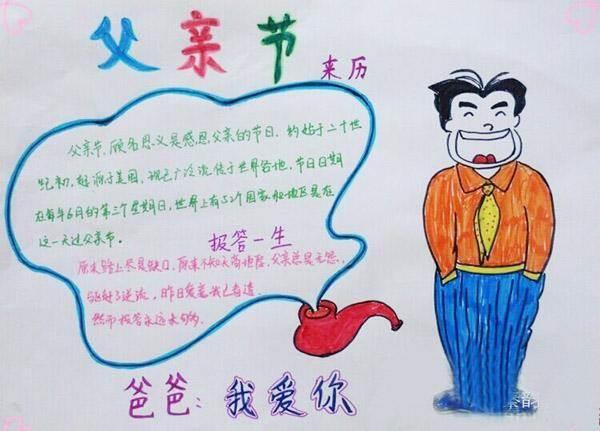 父亲节
来历
父亲节,顾名思义是感恩父亲的节日,约始于二十世
纪初,起源于美国,现已广泛流传于世界各地,节日日期
在每年6月的第三个星期日,世界上有52个国家和地区是在
这一天过父亲节。
报答一生
原来脸上尽是
父亲总是无怨
昨日
然而报答永远未
爸爸:我爱你